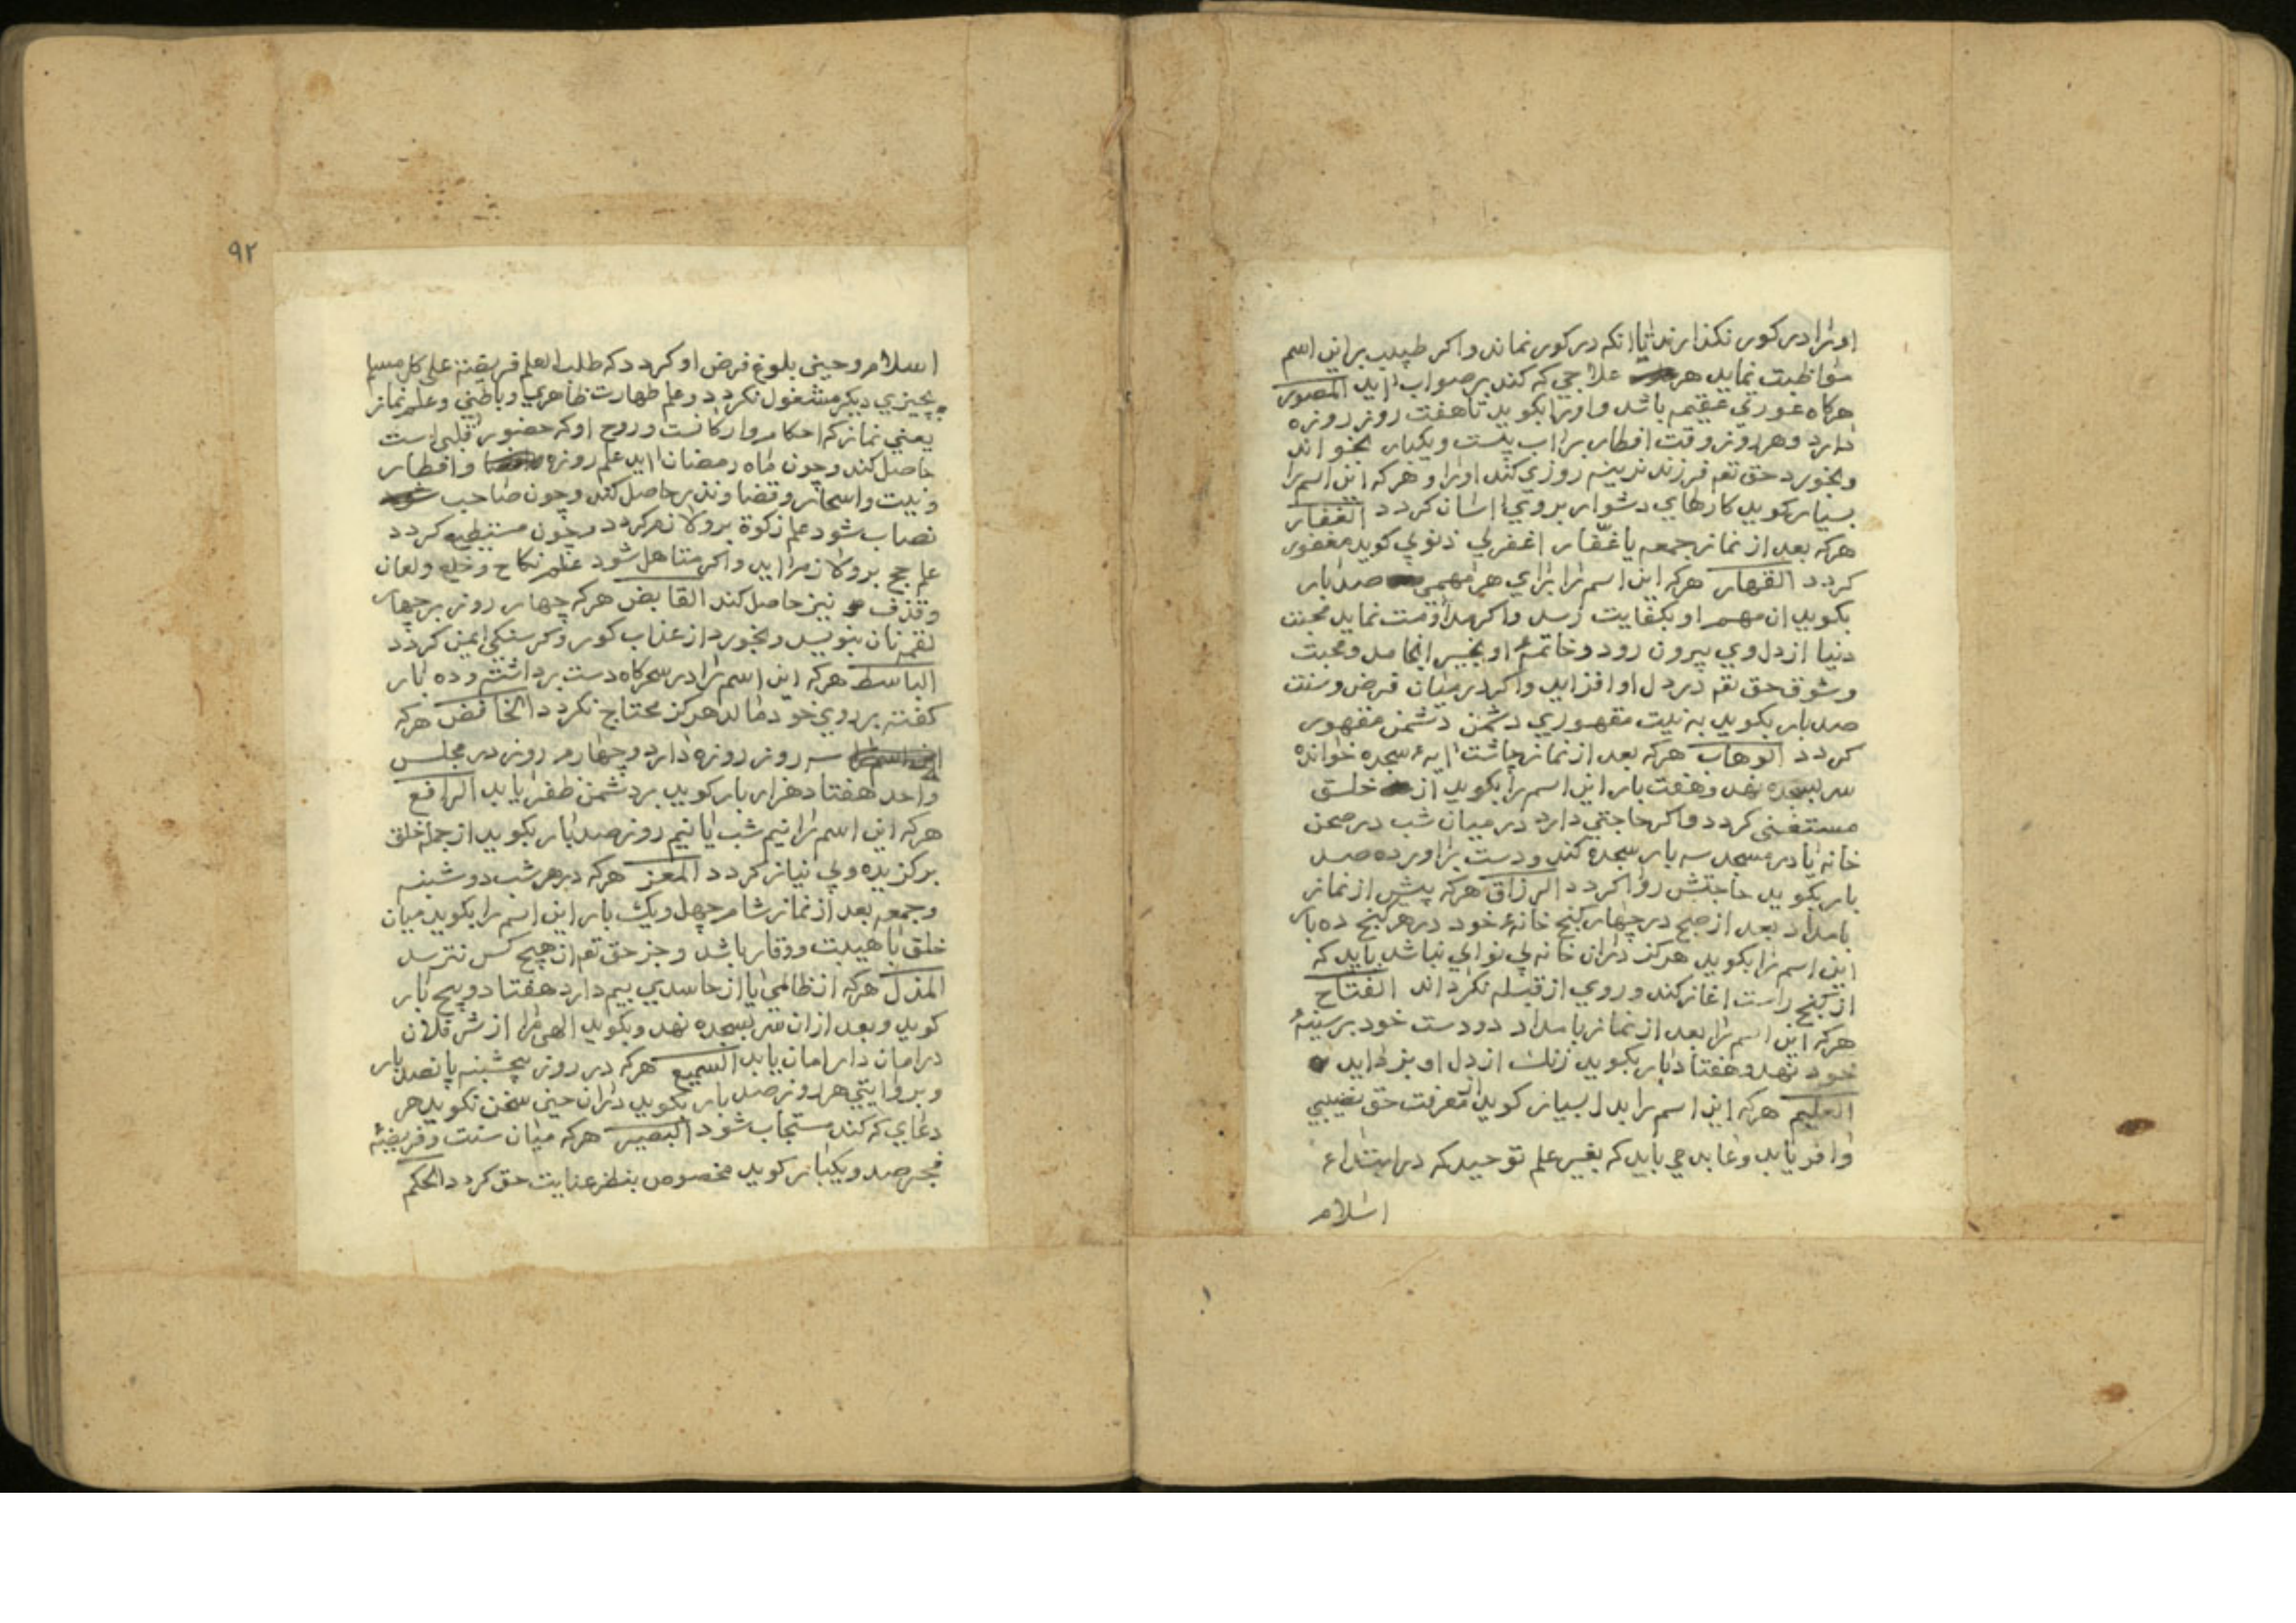 اورا در کور نکذارند تا انکه در کور نماند واکر طبیب براین اسم
مواظبت نماید هر علاجی که کند بر صواب اید المصور
هرکاه عورتی عقیمه باشد واورا بکوید تا هفت روز روزه
دارد وهر روز وقت افطار بر اب بیست ویکبار بخواند
وبخورد حق تعم فرزند نرینه روزی کند اورا وهرکه این اسم را
بسیار کوید کارهای دشوار بروی اسان کردد الغفار
هرکه بعد از نماز جمعه یا غفّار اغفرلی ذنوبی کوید مغفور
کردد القهار هرکه این اسم را برای هر مهمی صد بار
بکوید ان مهم او بکفایت رسد واکر مداومت نماید محبت
دنیا از دل وی بیرون رود وخاتمهٔ او بخیر انجامد ومحبت
وشوق حق تعم در دل او افزاید واکر در میان فرض وسنت
صد بار بکوید به نیت مقهوری دشمن دشمن مقهور
کردد الوهاب هرکه بعد از نماز چاشت ایهٔ سجده خوانده
سر بسجده نهد وهفت بار این اسم را بکوید از خلق
مستغنی کردد واکر حاجتی دارد در میان شب در صحن
خانه یا در مسجد سه بار سجده کند ودست براورده صد
بار بکوید حاجتش روا کردد الرزاق هرکه پیش از نماز
بامداد بعد از صبح در چهار کنج خانهٔ خود در هر کنج ده بار
این اسم را بکوید هرکز دران خانه بی نوایی نباشد باید که
از کنج راست اغاز کند وروی از قبله نکرداند الفتاح
هرکه این اسم را بعد از نماز بامداد دو دست خود بر سینهٔ
خود نهد وهفتاد بار بکوید زنک از دل او بزداید
العلیم هرکه این اسم را بدل بسیار کوید از معرفت حق نصیبی
وافر یابد وعابد می باید که بغیر علم توحید که در ابتداء
اسلام
۹۲
اسلام وحین بلوغ فرض او کردد که طلب العلم فریضة علی کل مسلم
بچیزی دیکر مشغول نکردد وعلم طهارت ظاهری وباطنی وعلم نماز
یعنی نماز که احکام وارکانست وروح او که حضور قلبی است
حاصل کند وچون ماه رمضان اید علم روزه وافطار
ونیت واسحار وقضا ونذر حاصل کند وچون صاحب شود
نصاب شود علم زکوة برو لازم کردد وچون مستطیع کردد
علم حج برو لازم اید واکر متاهل شود علم نکاح وخلع ولعان
وقذف نیز حاصل کند القابض هرکه چهار روز بر چهار
لقمه نان بنویسد وبخورد از عذاب کور وکرسنکی ایمن کردد
الباسط هرکه این اسم را در سحرکاه دست برداشته وده بار
کفته بر روی خود مالد هرکز محتاج نکردد الخافض هرکه
این اسم را سه روز روزه دارد وچهارم روز در مجلس
واحد هفتاد هزار بار کوید بر دشمن ظفر یابد الرافع
هرکه این اسم را نیم شب یا نیم روز صد بار بکوید از جمله خلق
برکزیده وبی نیاز کردد المعز هرکه در هر شب دوشنبه
وجمعه بعد از نماز شام چهل ویک بار این اسم را بکوید میان
خلق با هیبت ووقار باشد وجز حق تعم از هیچ کس نترسد
المذل هرکه از ظالمی یا از حاسدی بیم دارد هفتاد وپنج بار
کوید وبعد ازان سر بسجده نهد وبکوید الهی مرا از شر فلان
در امان دار امان یابد السمیع هرکه در روز پنجشنبه پانصد بار
وبروایتی هر روز صد بار بکوید دران حین سخن نکوید هر
دعای که کند مستجاب شود البصیر هرکه میان سنت وفریضهٔ
فجر صد ویکبار کوید مخصوص بنظر عنایت حق کردد الحکم